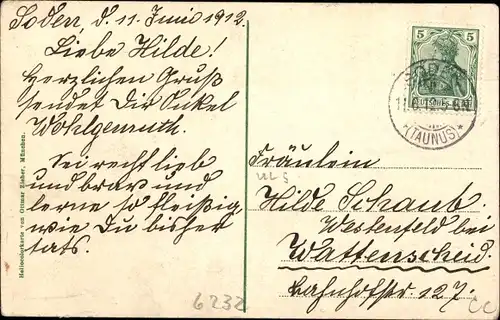 Soden, d. 11. Juni 1912.
Liebe Hilde!
Herzlichen Gruß
sendet Dir Onkel
Wohlgemuth.
Sei recht lieb
und brav und
lerne so fleißig,
wie Du bisher
tats.
Heliocolorkarte von Ottmar Zieher, München.
5 5
(TAUNUS)
Fräulein
Hilde Schaub.
Westenfeld bei
Wattenscheid.
Bahnhofstr. 127.
6232